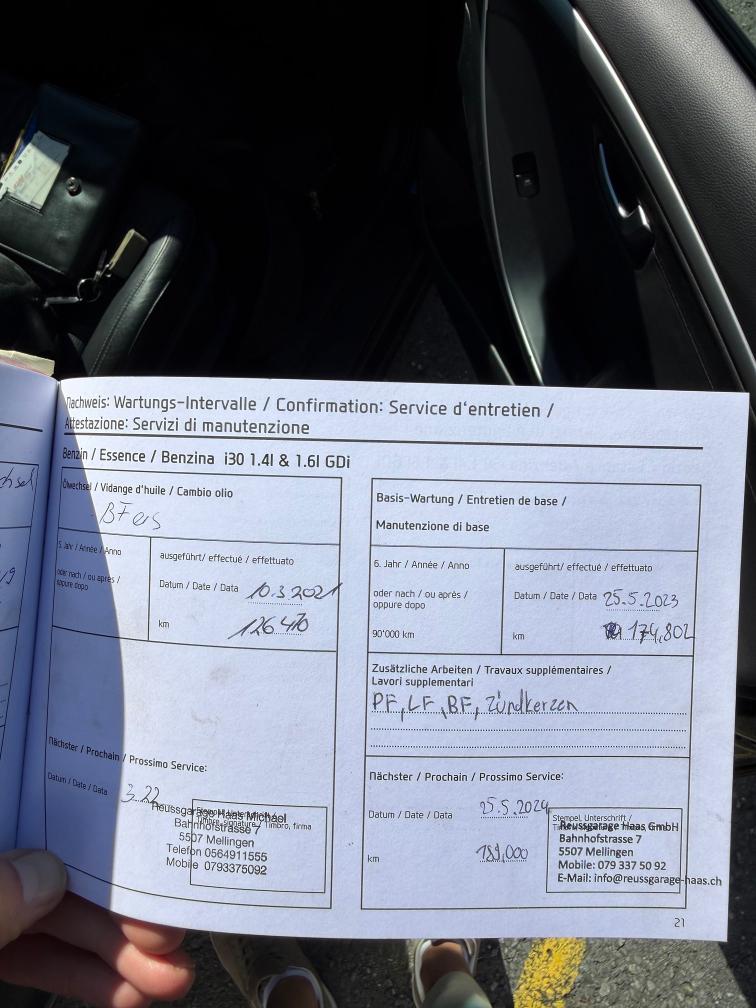 Nachweis: Wartungs-Intervalle / Confirmation: Service d'entretien /
Attestazione: Servizi di manutenzione
Benzin / Essence / Benzina i30 1.4l & 1.6l GDi
Ölwechsel / Vidange d'huile / Cambio olio
5. Jahr / Année / Anno
oder nach / ou après /
oppure dopo
ausgeführt/ effectué / effettuato
Datum / Date / Data 10.3.2021
km 126470
Nächster / Prochain / Prossimo Service:
Datum / Date / Data 3.22
Reussgarage Haas Michael
Bahnhofstrasse 7
5507 Mellingen
Telefon 0564911555
Mobile 0793375092
Basis-Wartung / Entretien de base /
Manutenzione di base
6. Jahr / Année / Anno
oder nach / ou après /
oppure dopo
90'000 km
ausgeführt/ effectué / effettuato
Datum / Date / Data 25.5.2023
km 174,802
Zusätzliche Arbeiten / Travaux supplémentaires /
Lavori supplementari
PF, LF, BF, Zündkerzen
Nächster / Prochain / Prossimo Service:
Datum / Date / Data 25.5.2024
km 189,000
Stempel, Unterschrift /
Reussgarage Haas GmbH
Bahnhofstrasse 7
5507 Mellingen
Mobile: 079 337 50 92
E-Mail: info@reussgarage-haas.ch
21